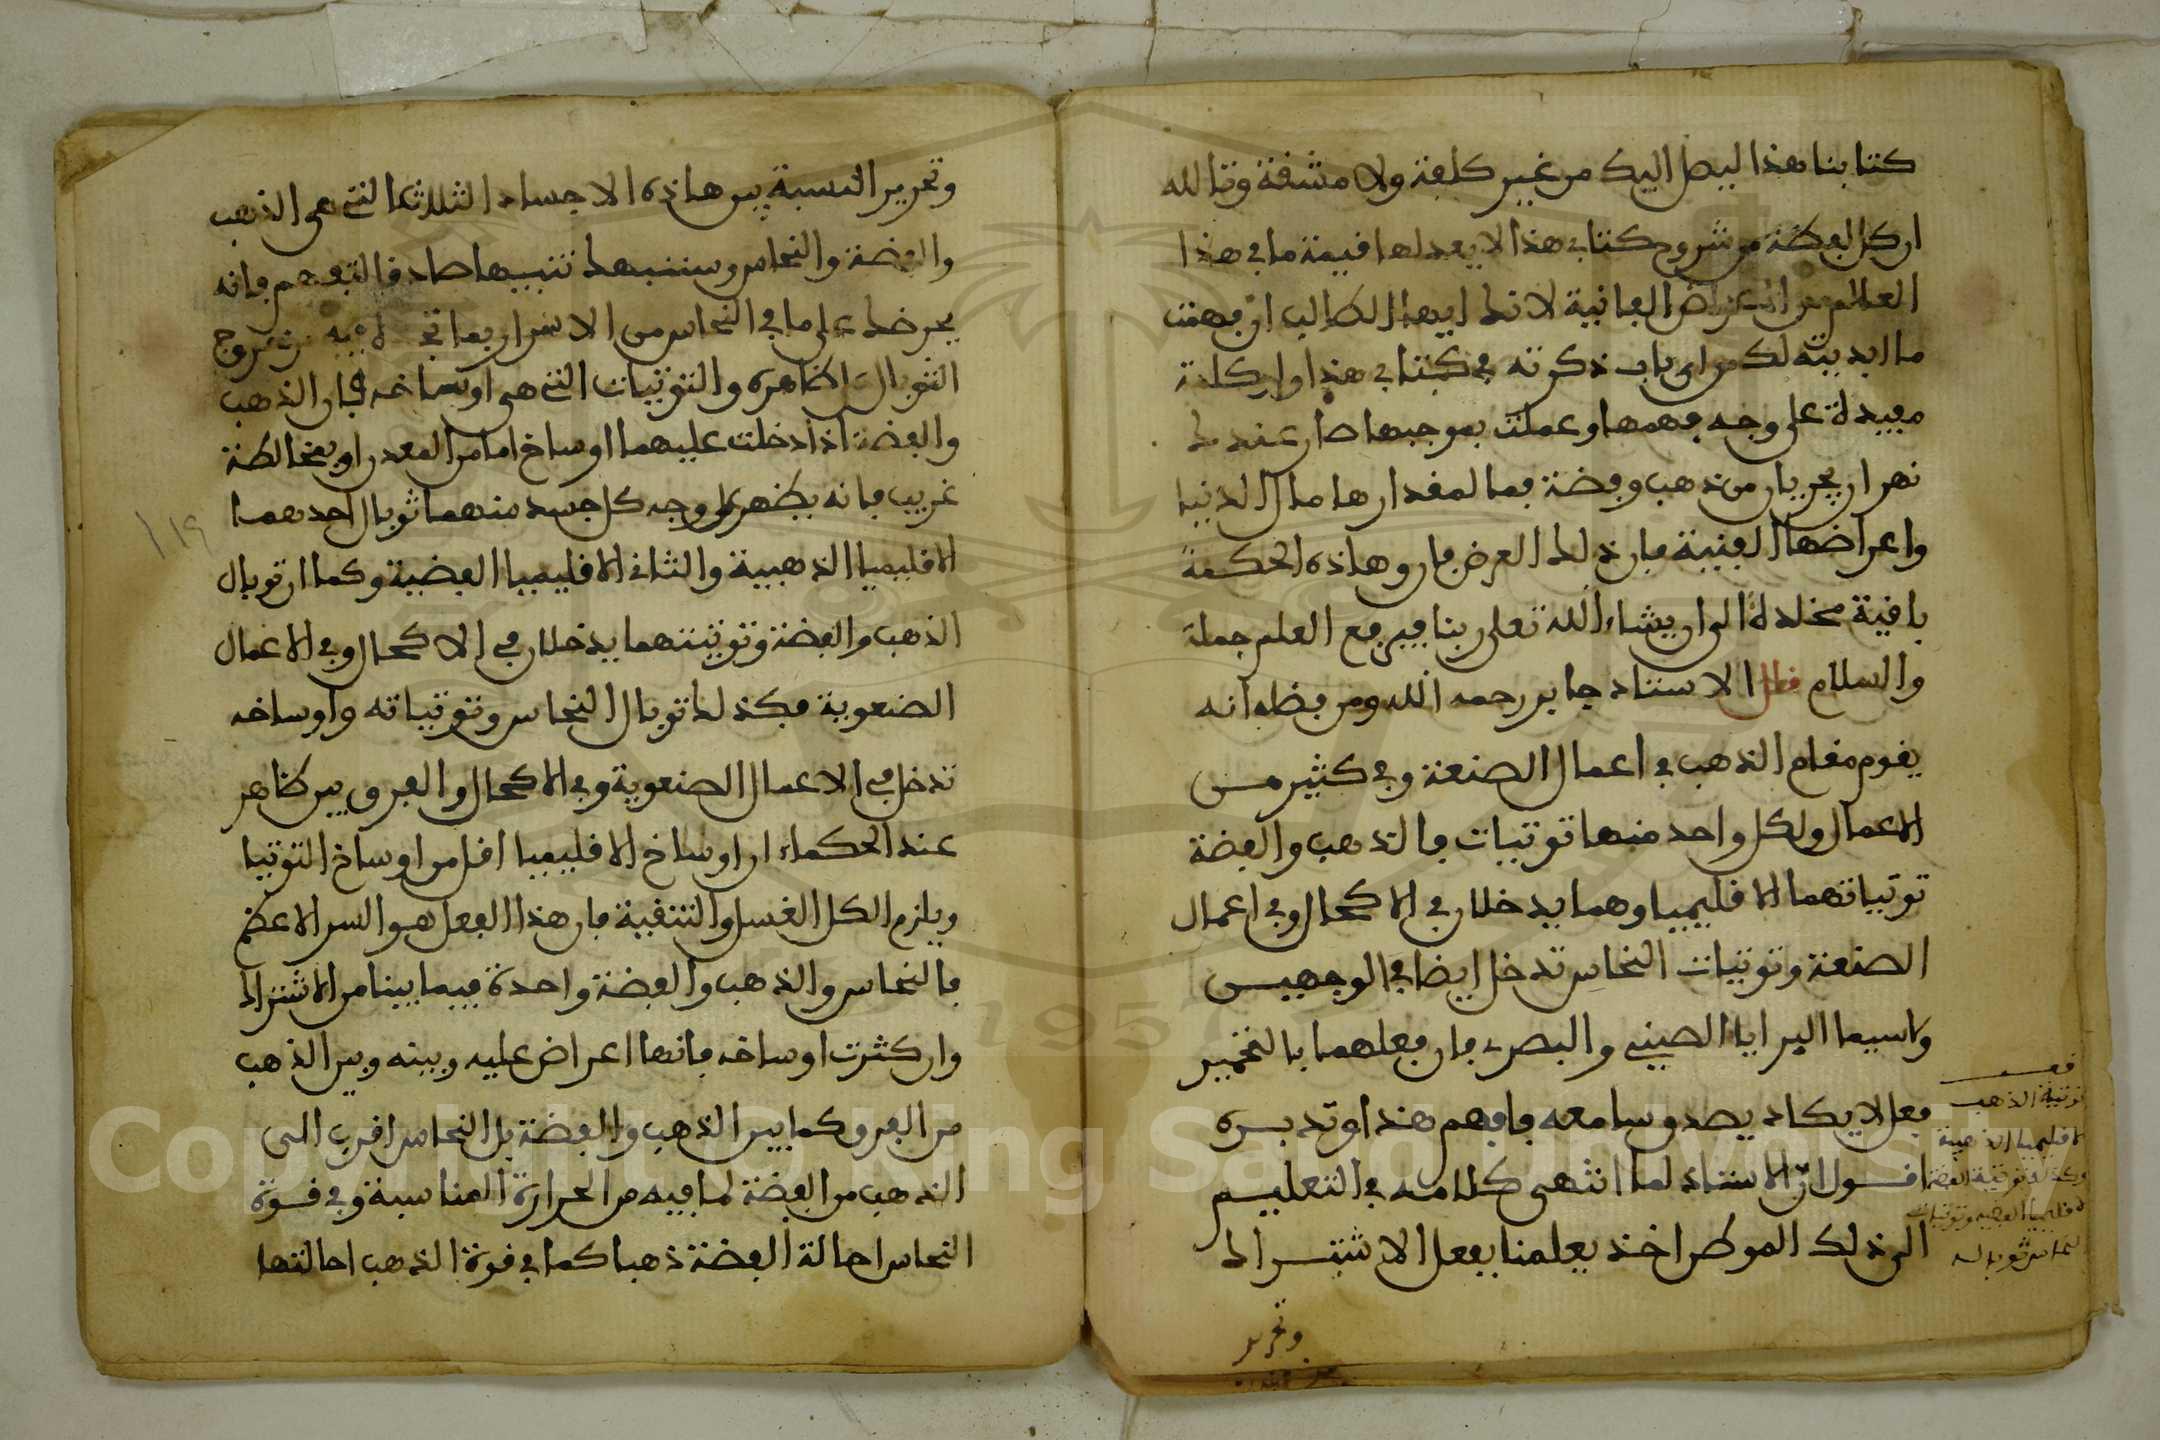 كتابنا هذا ليصل اليك من غير كلفة ولا مشقة وتالله
ان كل لفظة من شروح كتابي هذا لا يعدلها قيمة ما في هذا
العالم من الاعراض الفانية لانك ايها الطالب ان فهمت
ما ابديته لك من اى باب ذكرته في كتابي هذا او ان كلمة
مفيدة على وجه فهمها وعملت بموجبها صار عندك
نهران يجريان من ذهب وفضة فما لمقدارها مال الدنيا
واعراضها الفنية فان ذلك العرض فان وهاذه الحكمة
باقية مخلدة الى ان يشاء الله تعلى ربنا فيرفع العلم جملة
والسلام قال الاستاد جابر رحمه الله ومن فضله انه
يقوم مقام الذهب في اعمال الصنعة وفي كثير من
الاعمال ولكل واحد منها توتيات فالذهب والفضة
توتياتهما الاقليميا وهما يدخلان في الاكحال وفي اعمال
الصنعة وتوتيات النحاس تدخل ايضا في الوجهين
ولاسيما البرايا الصيني والبصرى فان فعلهما بالتخمير
فعل لا يكاد يصدق سامعه فافهم هذا وتدبره
اقول ان الاستاد لما انتهى كلامه في التعليم
الى ذلك الموطن اخذ يعلمنا بفعل الاشتراك
توتية الذهب
الاقليميا الذهبية
وكذلك توتية الفضة
الاقليميا الفضية وتوتيات
النحاس ثوباله
وتحرير
وتحرير النسبة بين هاذه الاجساد الثلاثة التي هي الذهب
والفضة والنحاس وسننبهك تنبيها صادق التفهم فانه
يحرضك على ما في النحاس من الاسرار بما فيه من خروج
التوبال الظاهرة والتوتيات التي هي اوساخه فان الذهب
والفضة اذا دخلت عليهما اوساخ اما من المعدن او بمخالطة
غريب فانه يظهر على وجه كل جسد منهما ثوبال احدهما
الاقليميا الذهبية والثاني الاقليميا الفضية وكما ان توبال
الذهب والفضة وتوتيتهما يدخلان في الاكحال وفي الاعمال
الصنعوية فكذلك توبال النحاس وتوتياته واوساخه
تدخل في الاعمال الصنعوية وفي الاكحال والفرق بين ظاهر
عند الحكماء ان اوساخ الاقليميا اقل من اوساخ التوتيا
ويلزم الكل الغسل والتنقية فان هذا الفعل هو السر الاعظم
فالنحاس والذهب والفضة واحدة فيما بينا من الاشتراك
وان كثرت اوساخه فانها اعراض عليه وبينه وبين الذهب
من الفرق كما بين الذهب والفضة بل النحاس اقرب الى
الذهب من الفضة لما فيه من الحرارة المناسبة وفي قوة
النحاس احالة الفضة ذهبا كما في قوة الذهب احالتها
١١٩